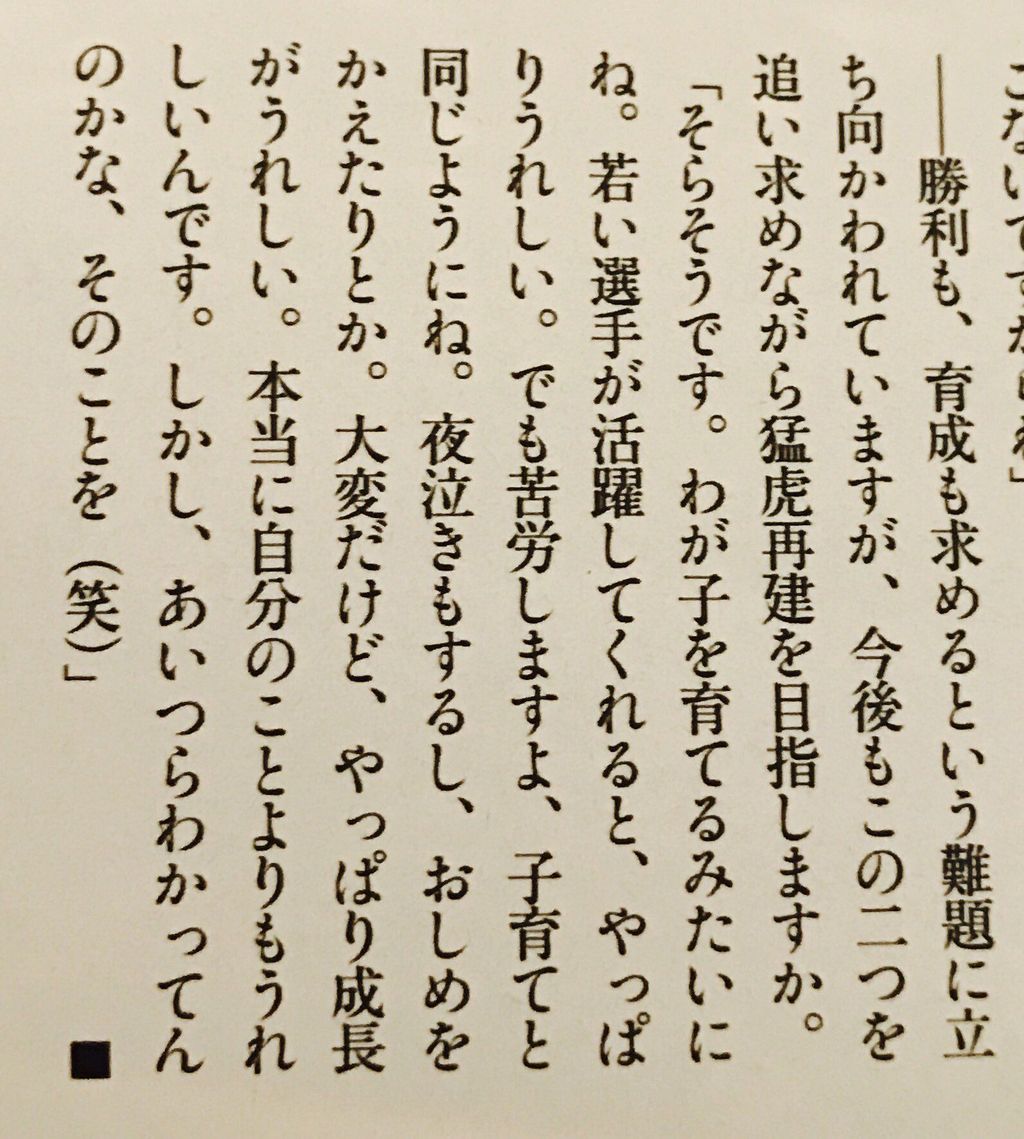 こないですからね」
――勝利も、育成も求めるという難題に立
ち向かわれていますが、今後もこの二つを
追い求めながら猛虎再建を目指しますか。
「そらそうです。わが子を育てるみたいに
ね。若い選手が活躍してくれると、やっぱ
りうれしい。でも苦労しますよ、子育てと
同じようにね。夜泣きもするし、おしめを
かえたりとか。大変だけど、やっぱり成長
がうれしい。本当に自分のことよりもうれ
しいんです。しかし、あいつらわかってん
のかな、そのことを（笑）」
■